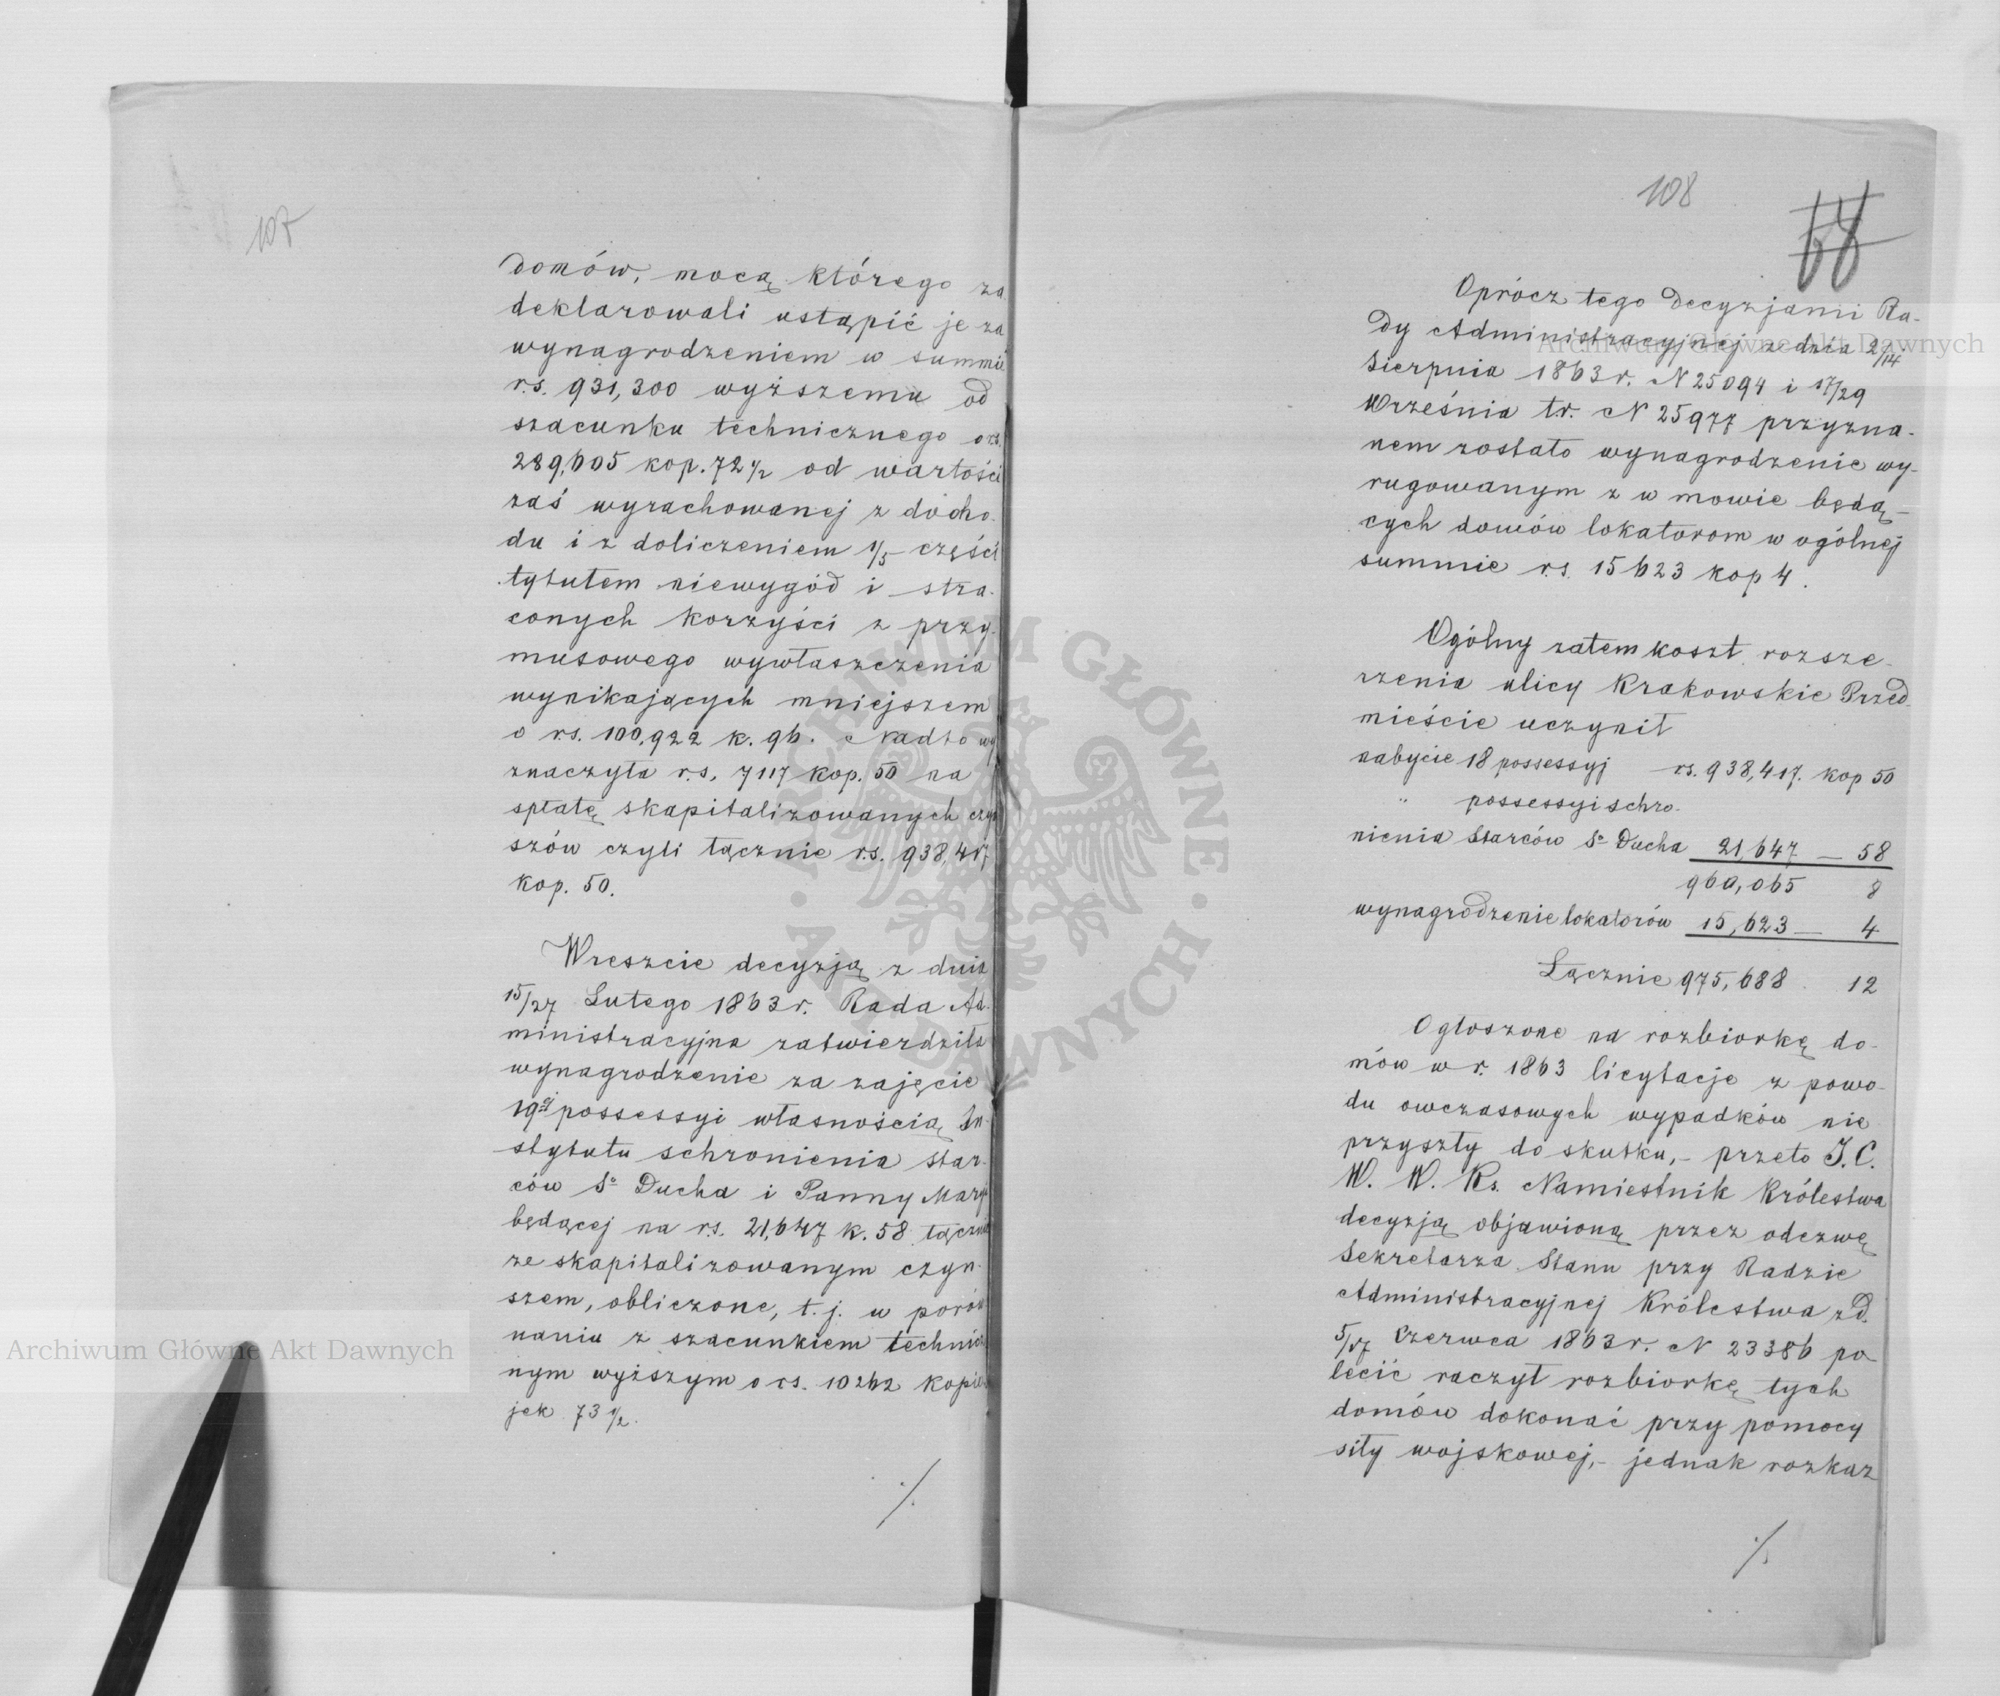 107
domów, mocą którego za
deklarowali ustąpić je za
wynagrodzeniem w summie
r.s. 931,300 wyższemu od
szacunku technicznego o rs.
289,605 kop. 72½ od wartości
zaś wyrachowanej z docho-
du i z doliczeniem 1/5 części
tytułem niewygód i stra-
conych korzyści z przy-
musowego wywłaszczenia
wynikających mniejszem
o rs. 100,922 k. 96. Nadto wy
znaczyła r.s. 7117 kop. 50 na
spłatę skapitalizowanych czyn
szów czyli łącznie r.s. 938,417
kop. 50.
Wreszcie decyzją z dnia
15/27 Lutego 1863 r. Rada Ad-
ministracyjna zatwierdziła
wynagrodzenie za zajęcie
19ej possessyi własnością In-
stytutu schronienia Star-
ców So Ducha i Panny Maryi
będącej na r.s. 21,647 k. 58 łącznie
ze skapitalizowanym czyn-
szem, obliczone, t.j. w porów
naniu z szacunkiem technicz
nym wyższym o rs. 10262 kopie-
jek 73½.
⁒
108
68
Oprócz tego decyzjami Ra-
dy Administracyjnej z dnia 2/14
Sierpnia 1863 r. N 25094 i 17/29
Września t.r. N 25977 przyzna-
nem zostało wynagrodzenie wy-
rugowanym z w mowie będą-
cych domów lokatorom w ogólnej
summie r.s. 15623 kop 4.
Ogólny zatem koszt rozsze-
rzenia ulicy Krakowskie Przed-
mieście uczynił
nabycie 18 possessyj rs. 938,417. kop 50
" possessyi schro-
nienia Starców So Ducha 21,647 — 58
960,065 8
wynagrodzenie lokatorów 15,623 — 4
Łącznie 975,688 . 12
Ogłoszone na rozbiorkę do-
mów w r. 1863 licytacje z powo-
du owczasowych wypadków nie
przyszły do skutku, – przeto J. C.
W. W. Ks. Namiestnik Królestwa
decyzją objawioną przez odezwę
Sekretarza Stanu przy Radzie
Administracyjnej Królestwa z d.
5/17 Czerwca 1863 r. N 23386 po
lecić raczył rozbiorkę tych
domów dokonać przy pomocy
siły wojskowej, – jednak rozkaz
⁒
Archiwum Główne Akt Dawnych
Archiwum Główne Akt Dawnych
ARCHIWUM GŁÓWNE · AKT DAWNYCH ·